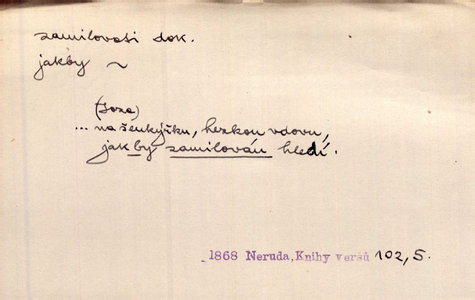 zamilovati dok.
jakby ~
(Joza)
... na šenkýřku, hezkou vdovu,
jakby zamilován hledí.
1868 Neruda, Knihy veršů 102,5.